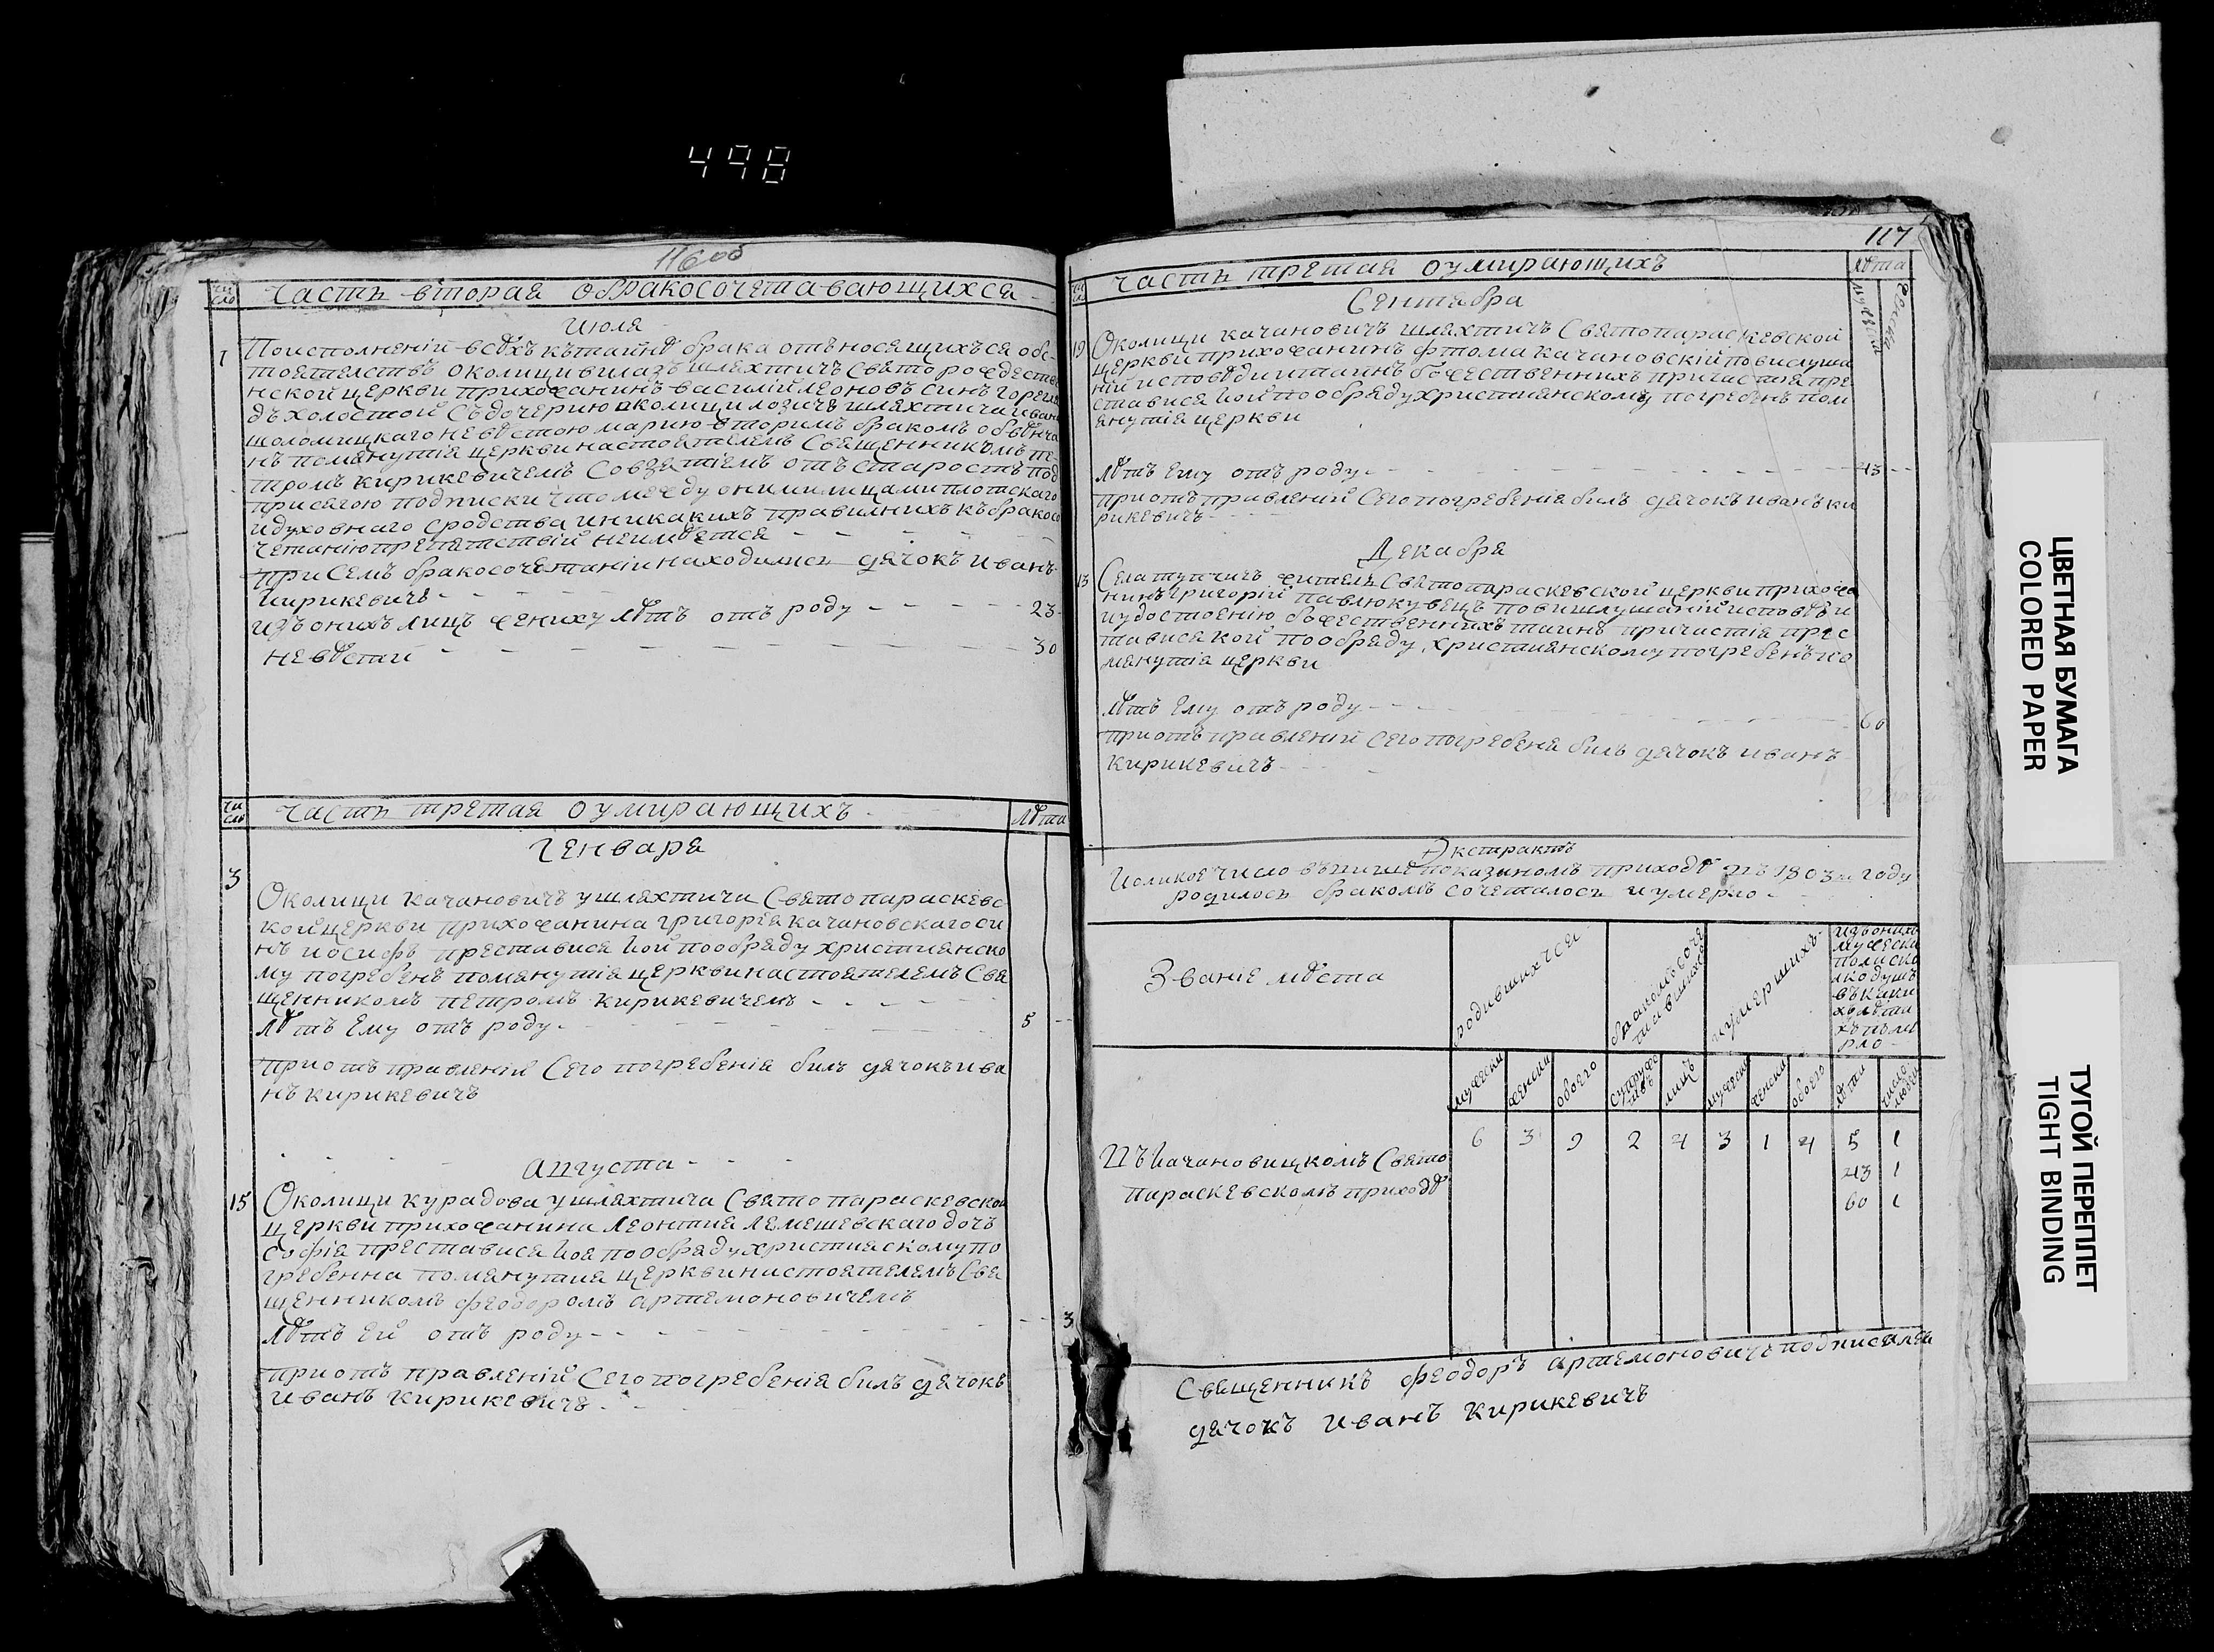 498
116об
чи
сло
Часть вторая обракосочетавающихся
Июля
7
По исполненій всѣхъ къ тайнѣ брака отъносящихъся обс-
тоятелствъ околици вилазъ шляхтичъ свято рождестве
нской церкви прихожанинъ василій леоновъ синъ горегля
дъ холостой съ дочерию околици лозичъ шляхтича ивана
шоломицкаго невѣстою мариею вторимъ бракомъ обвѣнча
нъ помянутія церкви настоятелемъ священникомъ пе-
тромъ кирикевичемъ со взятіемъ отъ старостъ под
присягою подписки что между оними лицами плотскаго
и духовнаго сродства и никакихъ правилнихъ къ бракосо
четанію препятствій неимѣется
при семъ бракосочетаніи находились дячокъ иванъ
кирикевичъ
изъ онихъ лицъ жениху лѣтъ отъ роду 23
невѣстѣ 30
чи
сло
Часть третая оумирающихъ
лѣта
Генваря
3
Околици качановичъ у шляхтича свято параскевс
кой церкви прихожанина григорія качановскаго си
нъ иосифъ преставися кой по обряду християнско
му погребенъ помянутія церкви настоятелемъ свя
щенникомъ петромъ кирикевичемъ
лѣтъ ему отъ роду 5
при отъправленій сего погребенія билъ дячокъ ива
нъ кирикевичъ
августа
15
Околици курадова у шляхтича свято параскевской
церкви прихожанина леонтия лемешевскаго дочъ
софія преставися коя по обряду християскому по
гребенна помянутия церкви настоятелемъ свя
щенникомъ феодоромъ артемоновичемъ
лѣтъ ей отъ роду 3
при отъ правленій сего погребенія билъ дячокъ
иванъ кирикевичъ
117
Часть третая оумирающихъ
лѣта
мужеска
женска
Сентября
19
Околици качановичъ шляхтичъ свято параскевской
церкви прихожанинъ фтома качановскій по вислуша
ній исповѣди и таинъ божественнихъ причастия пре
ставися кой по обряду християнскому погребенъ пом
янутія церкви
лѣтъ ему отъ роду 43
при отъправленій сего погребенія билъ дячокъ иванъ ки
рикевичъ
Декабря
13
Села тупчичъ житель свято параскевской церкви прихожа
нинъ григорій павлюкувецъ по вишлушаній исповѣди
и удостоенію божественнихъ таинъ причастія прес
тавися кой по обряду християнскому погребенъ по
мянутія церкви
лѣтъ ему отъ роду 60
при отъправленій сего погребеня билъ дячокъ иванъ
кирикевичъ
Экстрактъ
Коликое число въ више показаномъ приходѣ въ 1803м году
родилось бракомъ сочеталось и умерло
Званіе мѣста
родившихъся
бракомъ соче
тавшихся
и умершихъ
изъ онихъ
мужеска
пола ско
лко душъ
въ каки
хъ лѣта
хъ уме
рло
мужеска
женска
обоего
супруже
ствъ
лицъ
мужеска
женска
обоего
лѣта
число
людей
Въ качановицкомъ свято 6 3 9 2 4 3 1 4 5 1
параскевскомъ приходѣ 43 1
60 1
Священникъ феодоръ артемоновичъ подписался
дячокъ иванъ кирикевичъ
ЦВЕТНАЯ БУМАГА
COLORED PAPER
ТУГОЙ ПЕРЕПЛЕТ
TIGHT BINDING